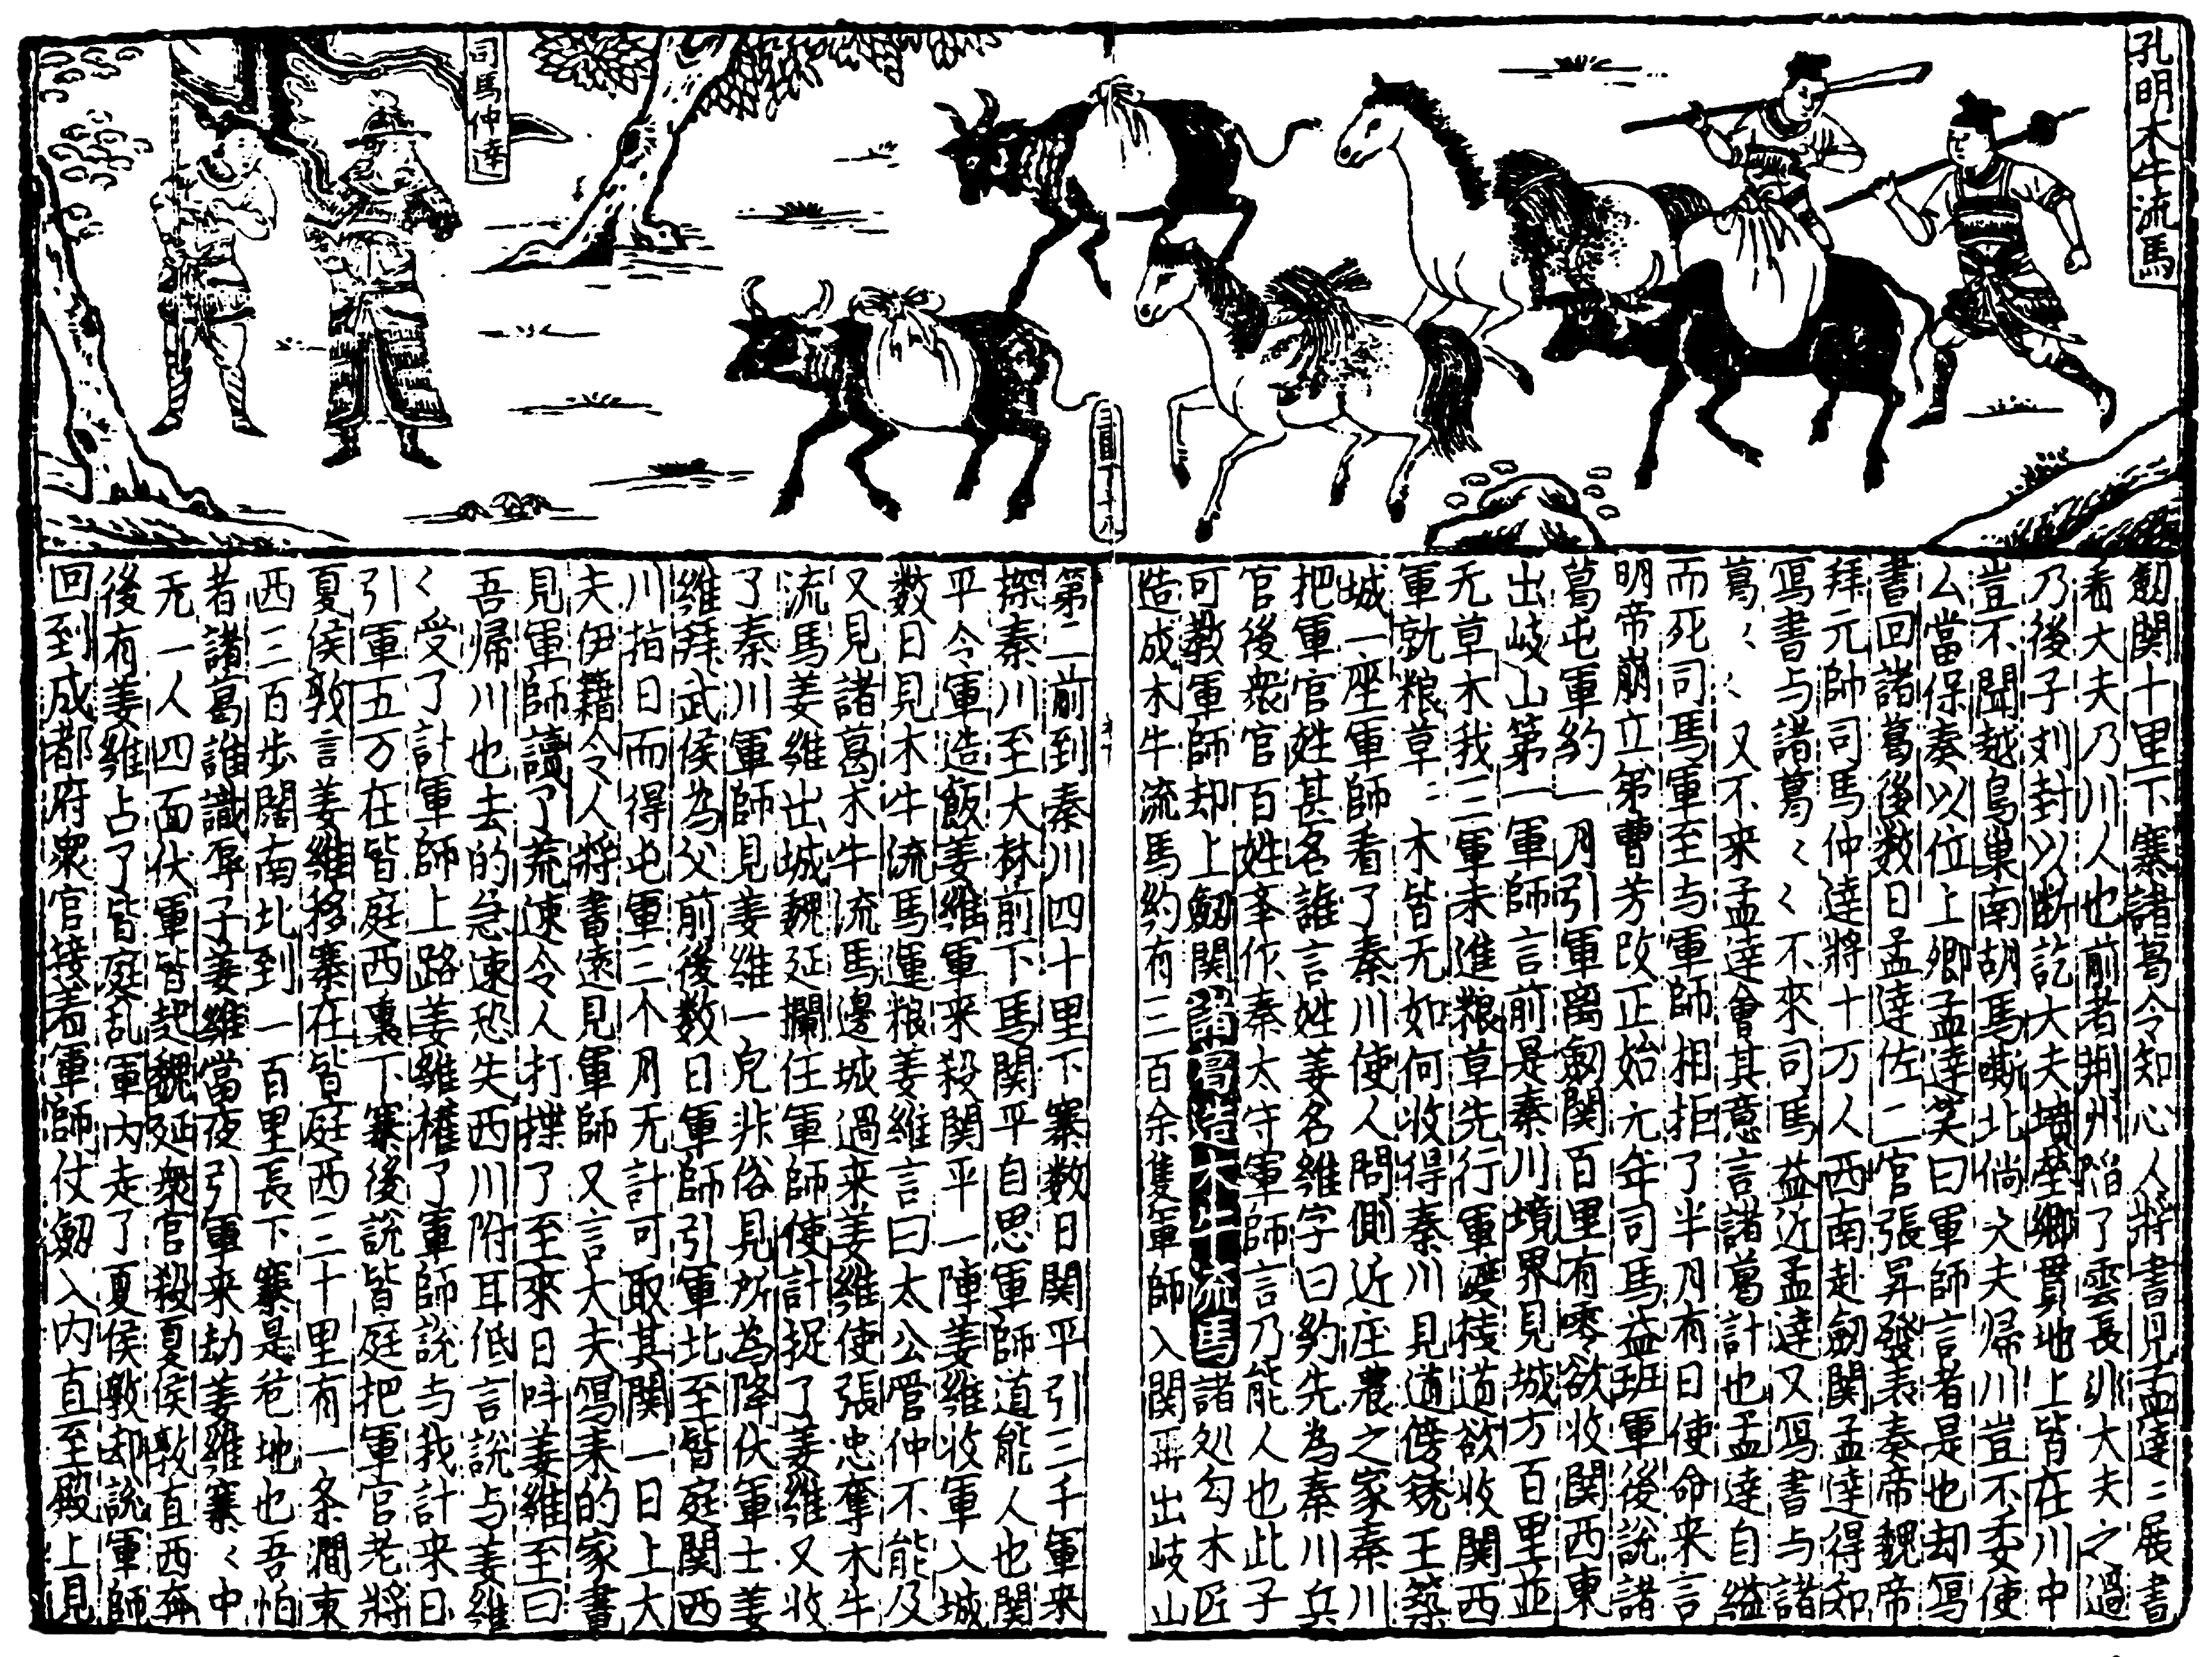 孔明木牛流馬
司馬仲達
劔関十里下寨諸葛令知心人將書見孟達〻展書
看大夫乃川人也前者荆州陷了雲長非大夫之過
乃後子刘封以断訖大夫墳塋鄉貫地上皆在川中
豈不聞越鳥巢南胡馬嘶北倘大夫歸川豈不委使
么當保奏以位上卿孟達笑曰軍師言者是也却写
書回諸葛後数日孟達佐二官張昇發表奏帝魏帝
拜元帥司馬仲達將十万人西南赴劔関孟達得知
写書与諸葛〻〻不來司馬益近孟達又写書与諸
葛〻〻又不来孟達會其意言諸葛計也孟達自縊
而死司馬軍至与軍師相拒了半月有日使命来言
明帝崩立弟曹芳改正始元年司馬益班軍後說諸
葛屯軍約一月引軍离劔関百里有零欲收関西東
出岐山第一軍師言前是秦川境界見城方百里並
无草木我三軍未進粮草先行軍渡棧道欲收関西
軍就粮草〻木皆无如何收得秦川見道傍秝王築
城一座軍師看了秦川使人問側近庄農之家秦川
把軍官姓甚名誰言姓姜名維字曰約先為秦川兵
官後衆官百姓夆作秦太守軍師言乃能人也此子
可教軍師却上劔関諸葛造木牛流馬諸処勾木匠
造成木牛流馬約有三百余隻軍師入関再出岐山
第二前到秦川四十里下寨数日関平引三千軍来
探秦川至大林前下馬関平自思軍師道能人也関
平令軍造飯姜維軍来殺関平一陣姜維收軍入城
数日見木牛流馬運粮姜維言曰太公管仲不能及
又見諸葛木牛流馬邊城過来姜維使張忠奪木牛
流馬姜維出城魏延攔住軍師使計捉了姜維又收
了秦川軍師見姜維一皃非俗見所為降伏軍士姜
維拜武侯為父前後数日軍師引軍北至皆庭関西
川指日而得屯軍三个月无計可取其関一日上大
夫伊籍令人將書遠見軍師又言大夫写来的家書
見軍師讀了荒速令人打揲了至來日呌姜維至曰
吾歸川也去的急速恐失西川附耳低言說与姜維
〻受了計軍師上路姜維權了軍師說与我計来日
引軍五万在皆庭西裏下寨後說皆庭把軍官老將
夏侯敦言姜維移寨在皆庭西三十里有一条澗東
西三百步闊南北到一百里長下寨是苍地也吾怕
者諸葛誰識辱子姜維當夜引軍来劫姜維寨〻中
无一人四面伏軍皆起魏延衆官殺夏侯敦直西奔
後有姜維占了皆庭乱軍內走了夏侯敦却說軍師
回到成都府衆官接着軍師仗劔入内直至殿上見